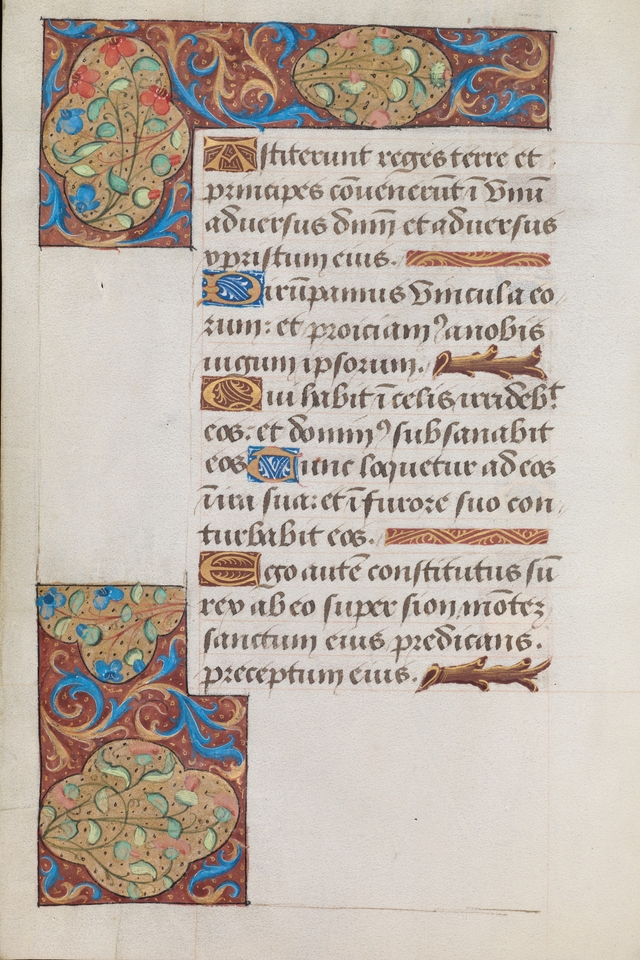 Astiterunt reges terre et
principes cōuenerūt ī vnū
aduersus dnm̄ et aduersus
xpristum eius.
Dirūpamus vincula eo
rum: et proiciamꝰ a nobis
iugum ipsorum.
Qui habit ī celis irridebᵗ
eos: et dominꝰ subsanabit
eos Tunc loquetur ad eos
ī ira sua: et ī furore suo con
turbabit eos.
Ego autē constitutus sū
rex ab eo super sion mōtez
sanctum eius predicans.
preceptum eius.